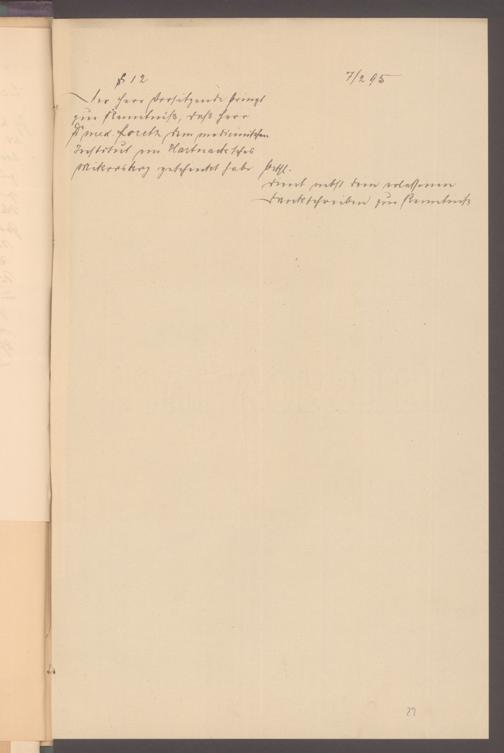 § 12
7/2 95
Der Herr Vorsitzende bringt
zur Kenntniß, daß Herr
Dr med. Loretz dem medicinischen
Institut ein Hartnacksches
Mikroskop geschenkt habe
dient nebst dem erlassenen
Dankschreiben zur Kenntniß